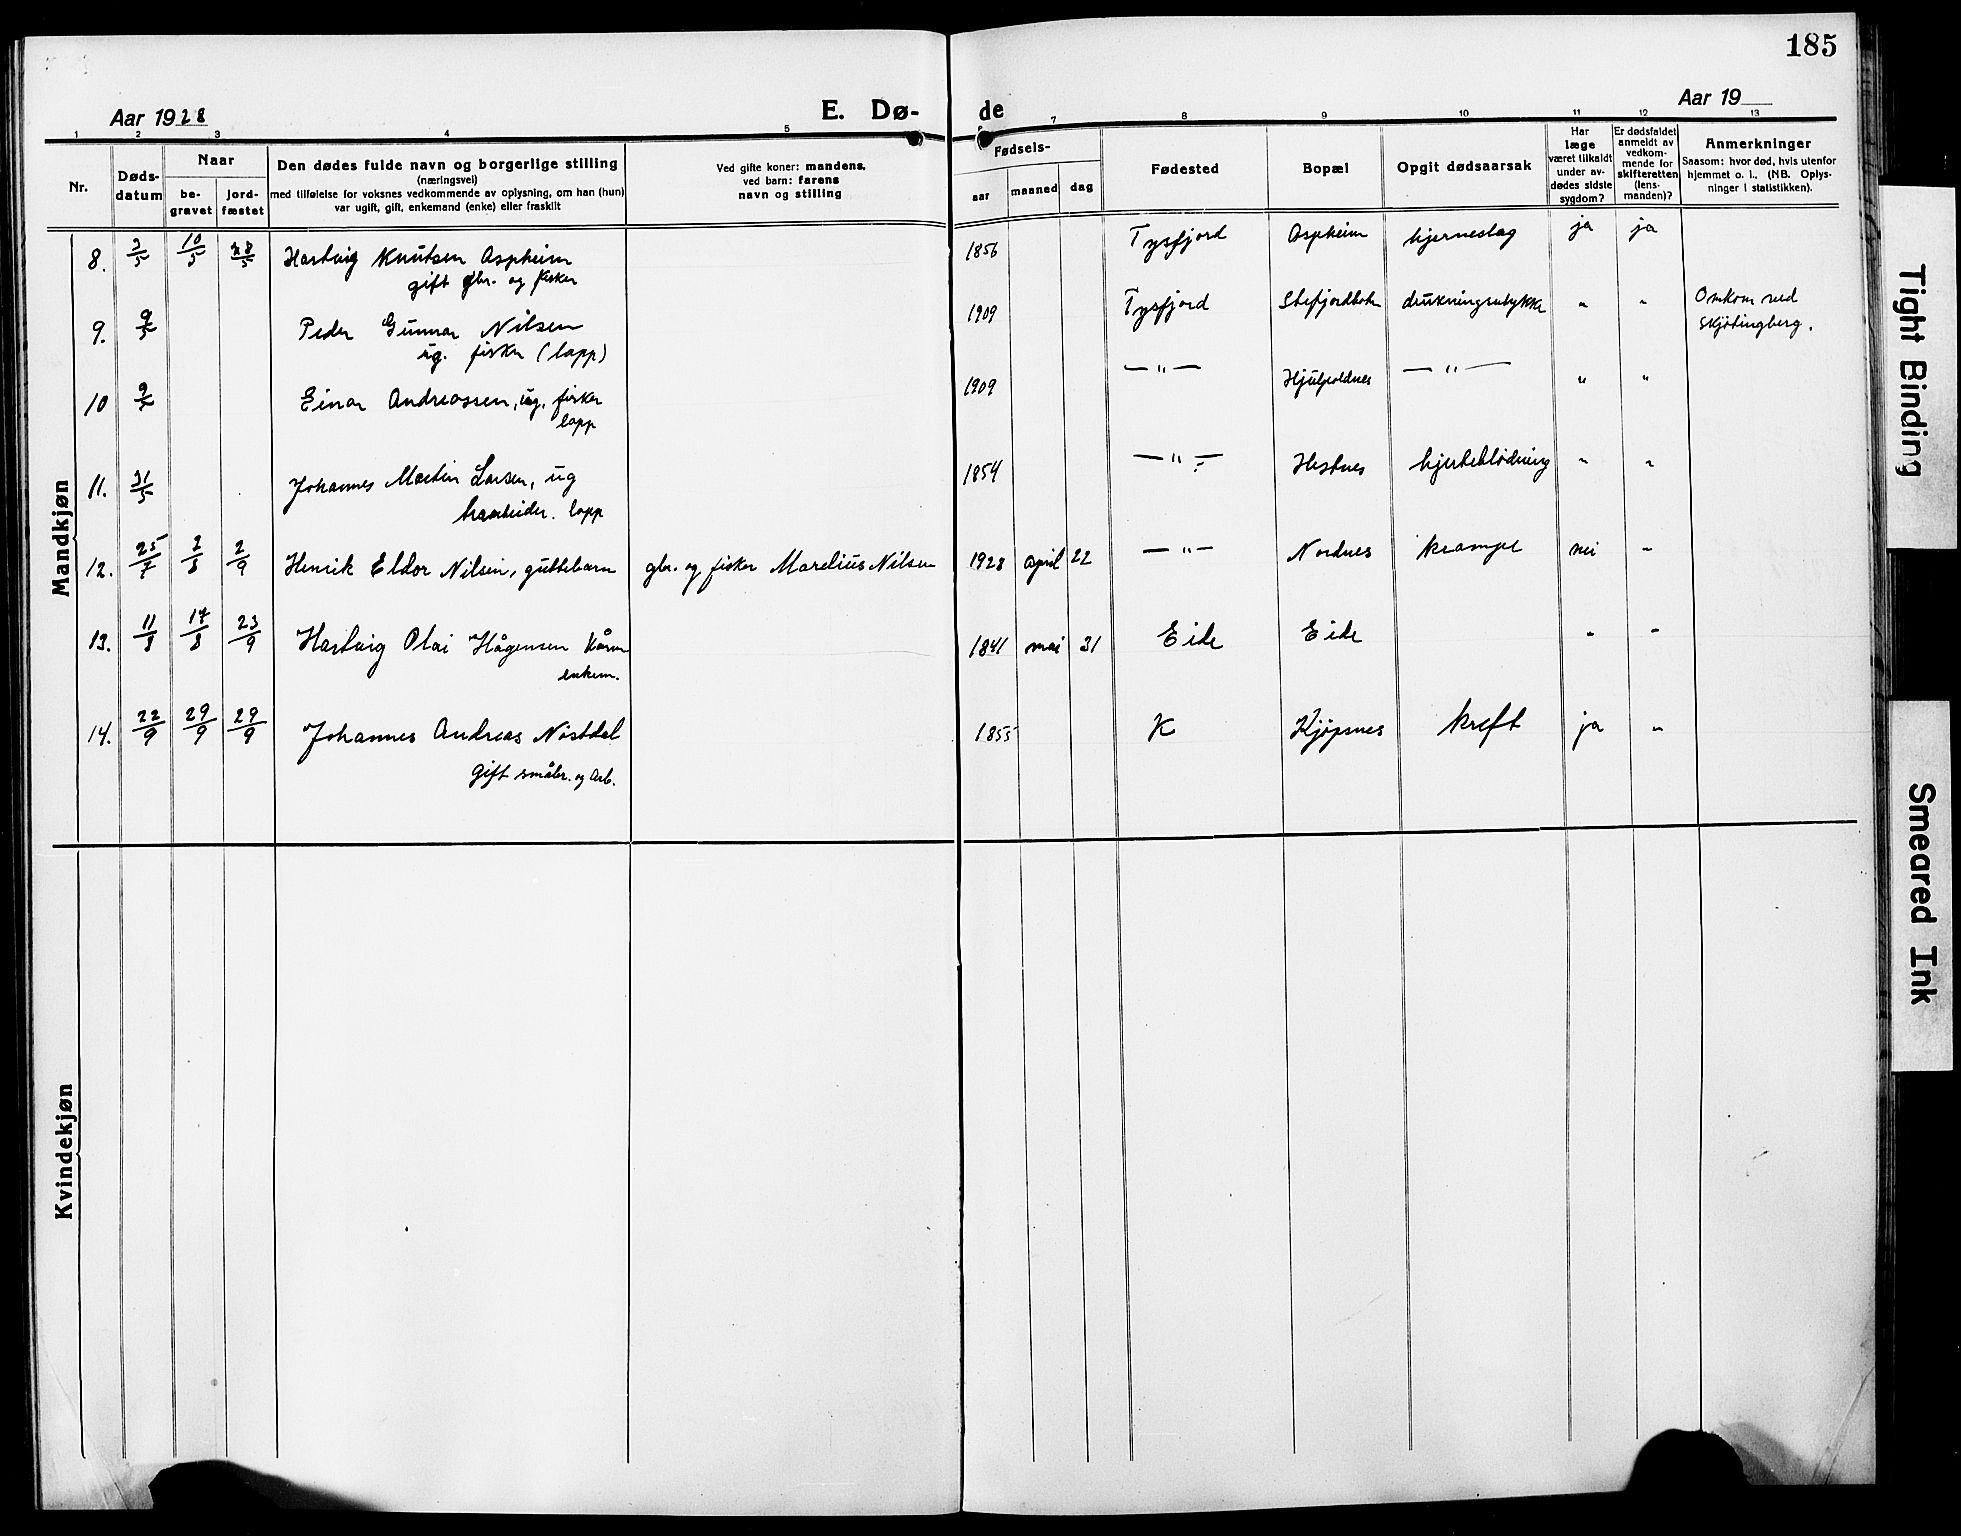 185
Aar 1928
E. Dø-
de
Aar 19
1 2 3 4 5 7 8 9 10 11 12 13
Nr.
Døds-
datum
Naar
be-
gravet
jord-
fæstet
Den dødes fulde navn og borgerlige stilling
(næringsvei)
med tilføielse for voksnes vedkommende av oplysning, om han (hun)
var ugift, gift, enkemand (enke) eller fraskilt
Ved gifte koner: mandens,
ved barn: farens
navn og stilling
Fødsels-
aar
maaned
dag
Fødested
Bopæl
Opgit dødsaarsak
Har
læge
været tilkaldt
under av-
dødes sidste
sygdom?
Er dødsfaldet
anmeldt av
vedkom-
mende for
skifteretten
(lens-
manden)?
Anmerkninger
Saasom: hvor død, hvis utenfor
hjemmet o. l. (NB. Oplys-
ninger i statistikken).
Mandkjøn
8. 3/5 10/5 28/5 Hartvig Knutsen Aspheim 1856 Tysfjord Aspheim hjerneslag ja ja
gift gbr. og fisker
9. 9/5 Peder Gunnar Nilsen 1909 Tysfjord Stefjordbotn drukningsulykke " " Omkom ved
ug. fisker (lapp) Skjötingberg.
10 9/5 Einar Andreassen, ug. fisker 1909 — " — — " — " "
lapp
11. 31/5 Johannes Martin Larsen, ug 1854 — " — Hestnes hjerteblödning " "
lapp
12. 25/7 3/8 2/9 Henrik Eldor Nilsen, guttebarn gbr. og fisker Marelius Nilsen 1928 april 22 — " — Nordnes krampe nei "
13. 11/8 17/8 23/9 Hartvig Olai Hågensen 1841 mai 31 Eide Eide " "
enkem.
14. 22/9 29/9 29/9 Johannes Andreas Nöstdal 1855 K Kjøpsnes kreft ja "
gift småbr. og arb.
Kvindekjøn
Tight Binding
Smeared Ink